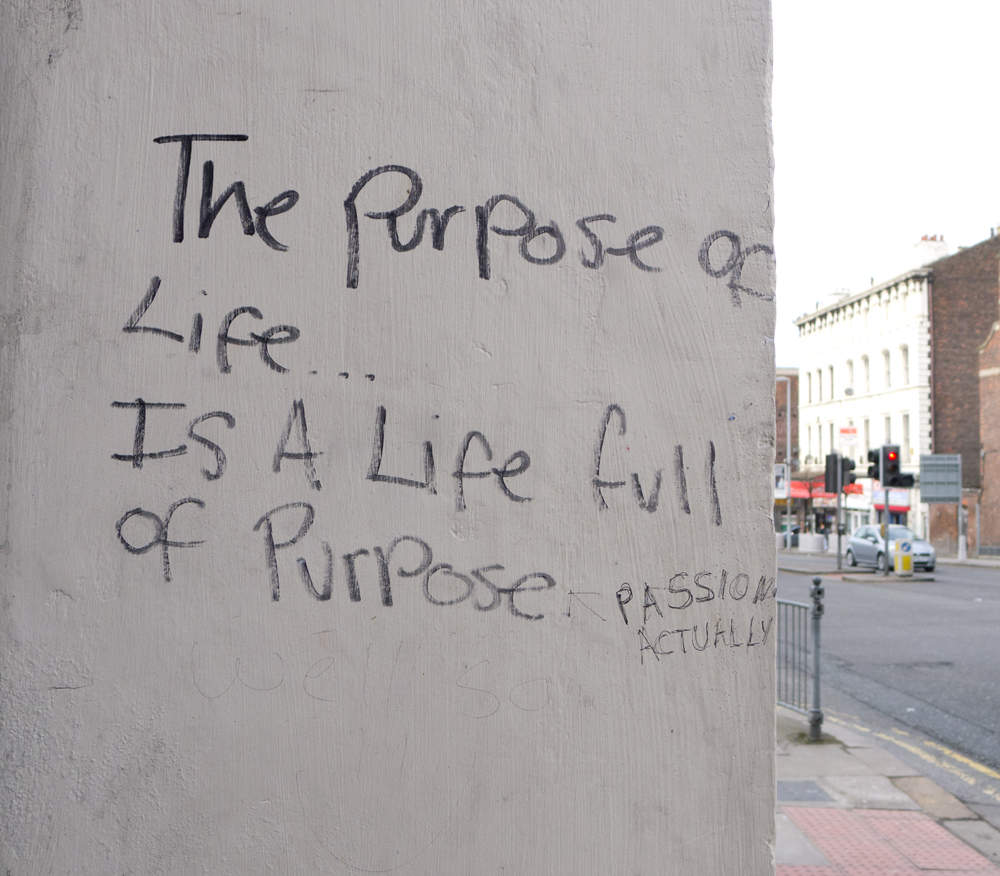 The Purpose of
Life...
Is A Life full
of Purpose
PASSION
ACTUALLY
Well sa